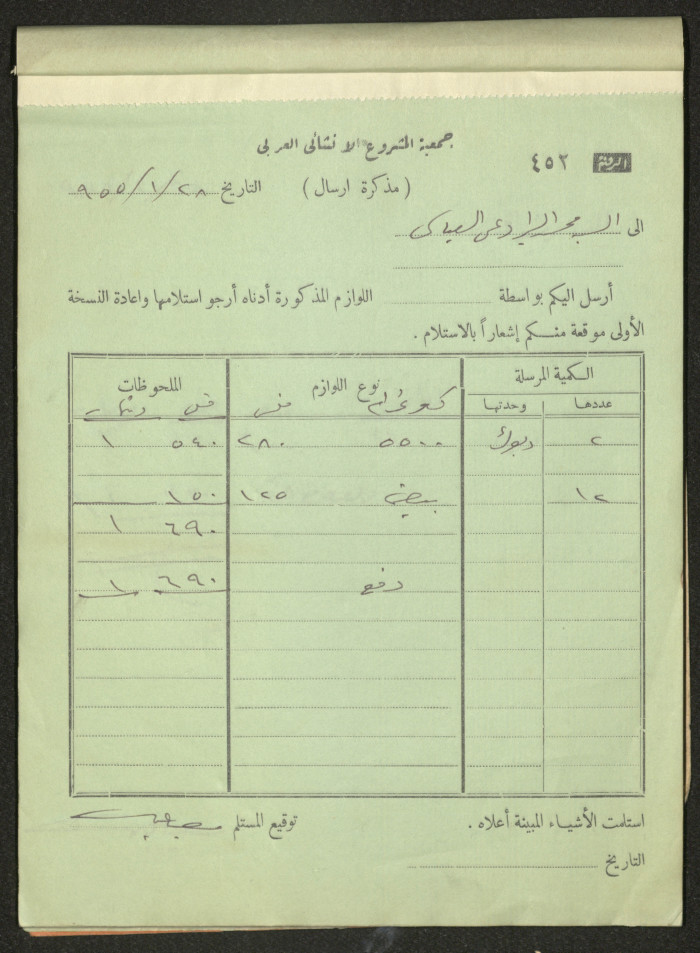 جمعية المشروع الانشائي العربي
الرقم ٤٥٢
(مذكرة ارسال) التاريخ ٢٨/١/٩٥٥
الى السيد
أرسل اليكم بواسطة اللوازم المذكورة أدناه أرجو استلامها واعادة النسخة
الأولى موقعة منكم إشعاراً بالاستلام .
الكمية المرسلة نوع اللوازم الملحوظات
عددها وحدتها فلس دينار
٢ ٥٥٠٠ ٢٨٠ ٥٤٠ ١
١٢ بيض ١٢٥ ١٥٠
٦٩٠ ١
دفع ٦٩٠ ١
استلمت الأشياء المبينة أعلاه . توقيع المستلم
التاريخ